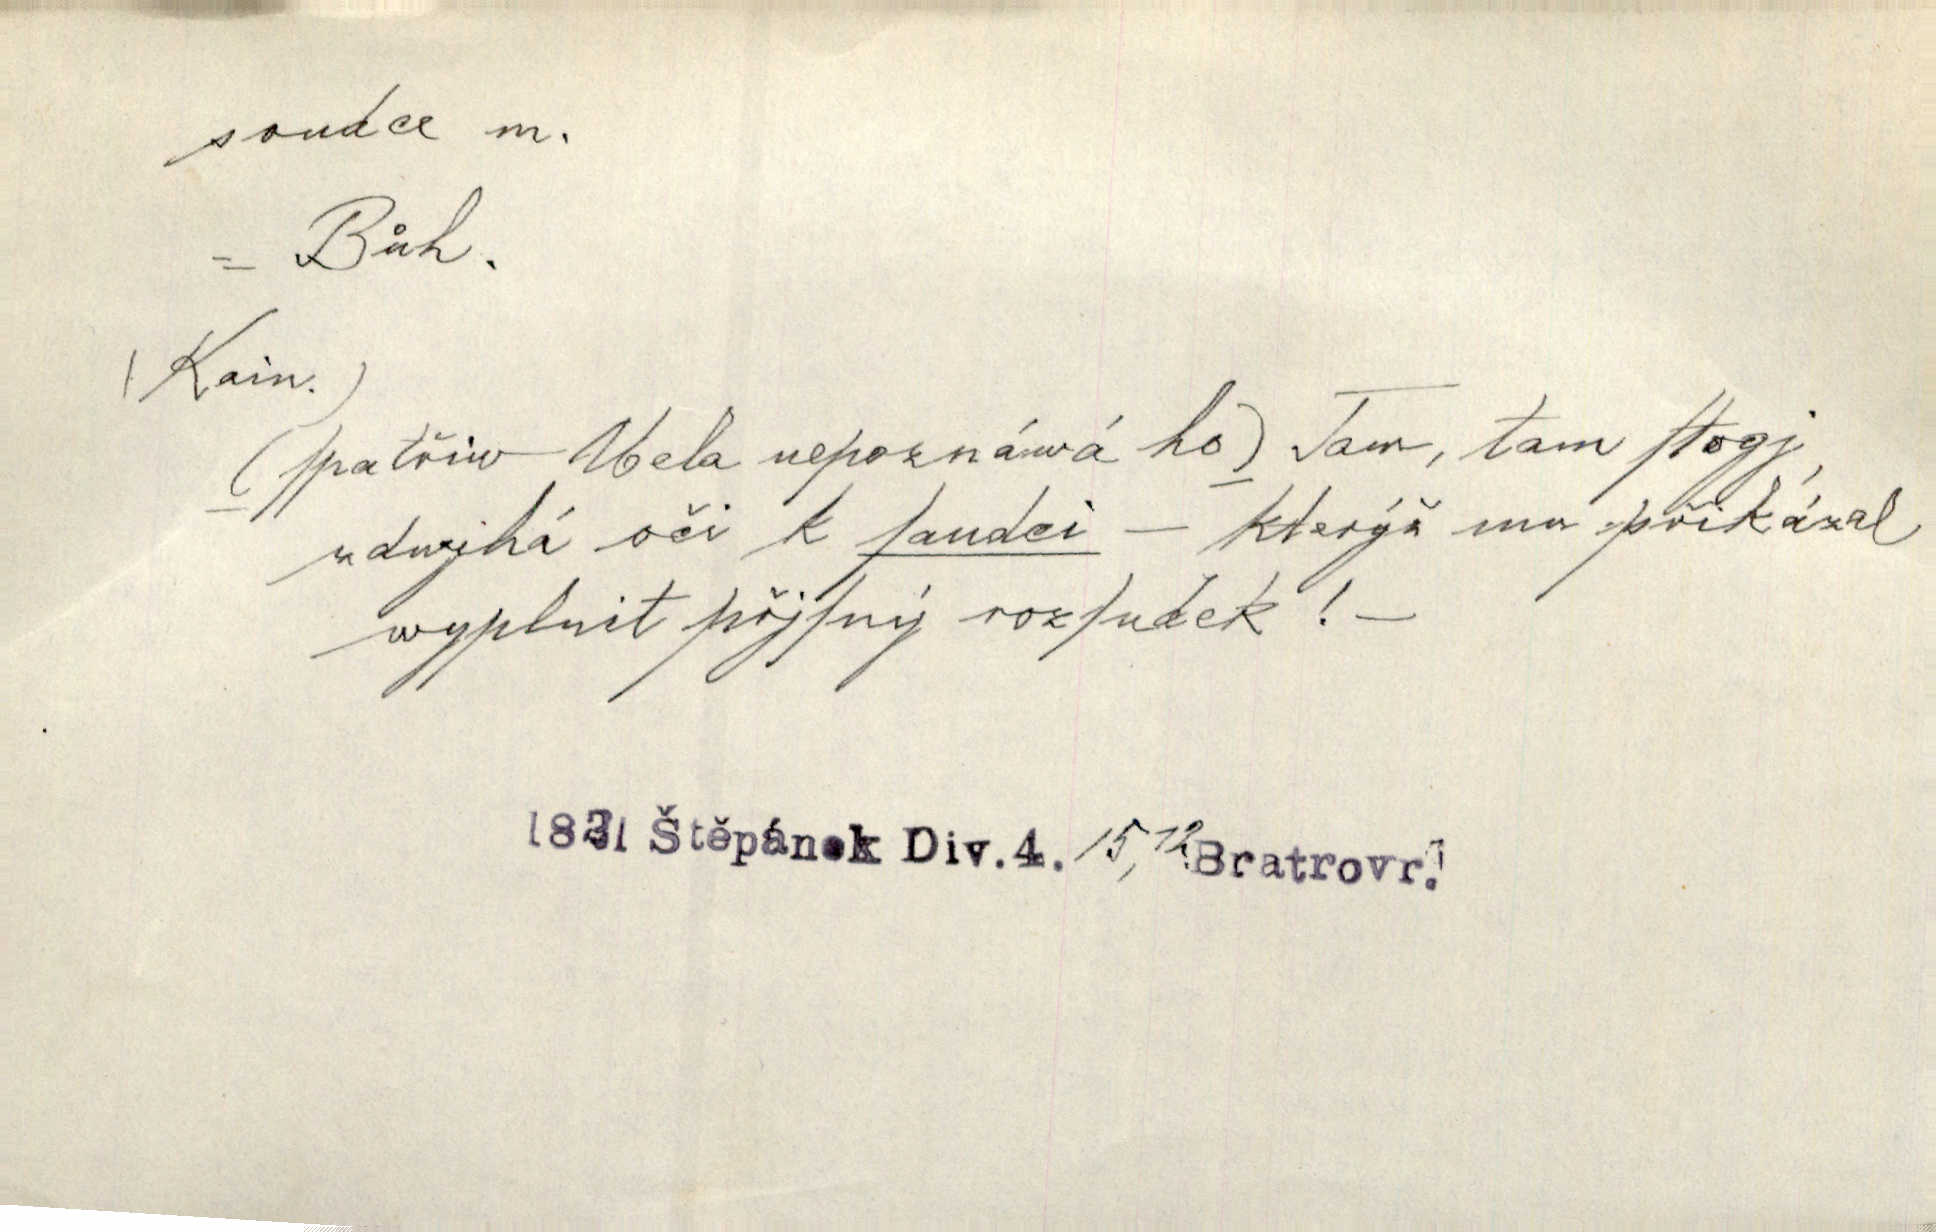 soudce m.
= Bůh.
(Kain.)
(ſpatřiw Abela nepoznáwá ho) Tam, tam ſtogj,
zdwjhá oči k ſaudci — kterýž mu přikázal
wyplnit přjſný rozſudek! —
Štěpánek Div.4. 15,12 Bratrovr.